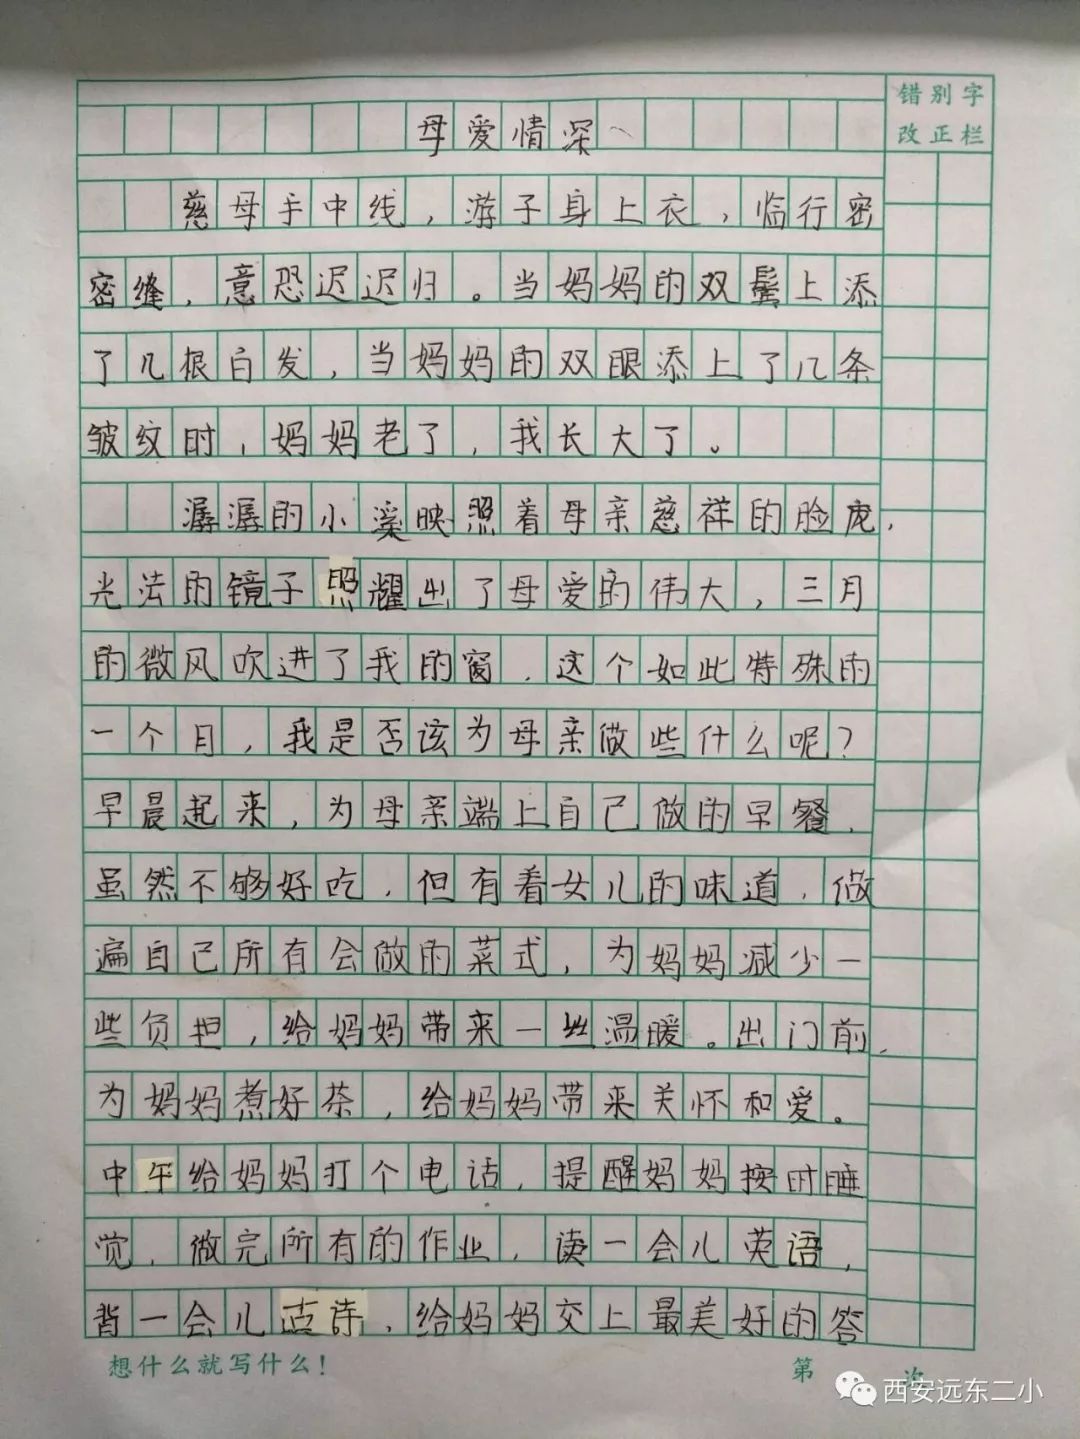 错别字
改正栏
母爱情深
慈母手中线，游子身上衣，临行密
密缝，意恐迟迟归。当妈妈的双鬓上添
了几根白发，当妈妈的双眼添上了几条
皱纹时，妈妈老了，我长大了。
潺潺的小溪映照着母亲慈祥的脸庞，
光洁的镜子照耀出了母爱的伟大，三月
的微风吹进了我的窗，这个如此特殊的
一个月，我是否该为母亲做些什么呢？
早晨起来，为母亲端上自己做的早餐，
虽然不够好吃，但有着女儿的味道，做
遍自己所有会做的菜式，为妈妈减少一
些负担，给妈妈带来一丝温暖。出门前，
为妈妈煮好茶，给妈妈带来关怀和爱。
中午给妈妈打个电话，提醒妈妈按时睡
觉，做完所有的作业，读一会儿英语，
背一会儿古诗，给妈妈交上最美好的答
想什么就写什么！
第 次
西安远东二小